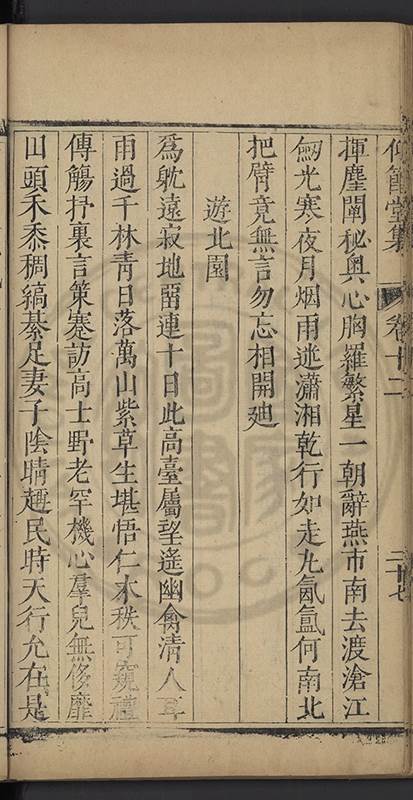 仰節堂集 卷十二 三十七
揮麈闡秘奧心胸羅繁星一朝辭燕市南去渡滄江
劒光寒夜月烟雨迷瀟湘乾行如走丸氤氳何南北
把臂竟無言勿忘相開廸
遊北園
爲躭遠寂地畱連十日此高臺屬望遙幽禽清人耳
雨過千林靑日落萬山紫草生堪悟仁水秩可窺禮
傳觴抒裏言策蹇訪高士野老罕機心羣兒無侈靡
田頭禾黍稠縞綦足妻子陰晴趣民時天行允在是